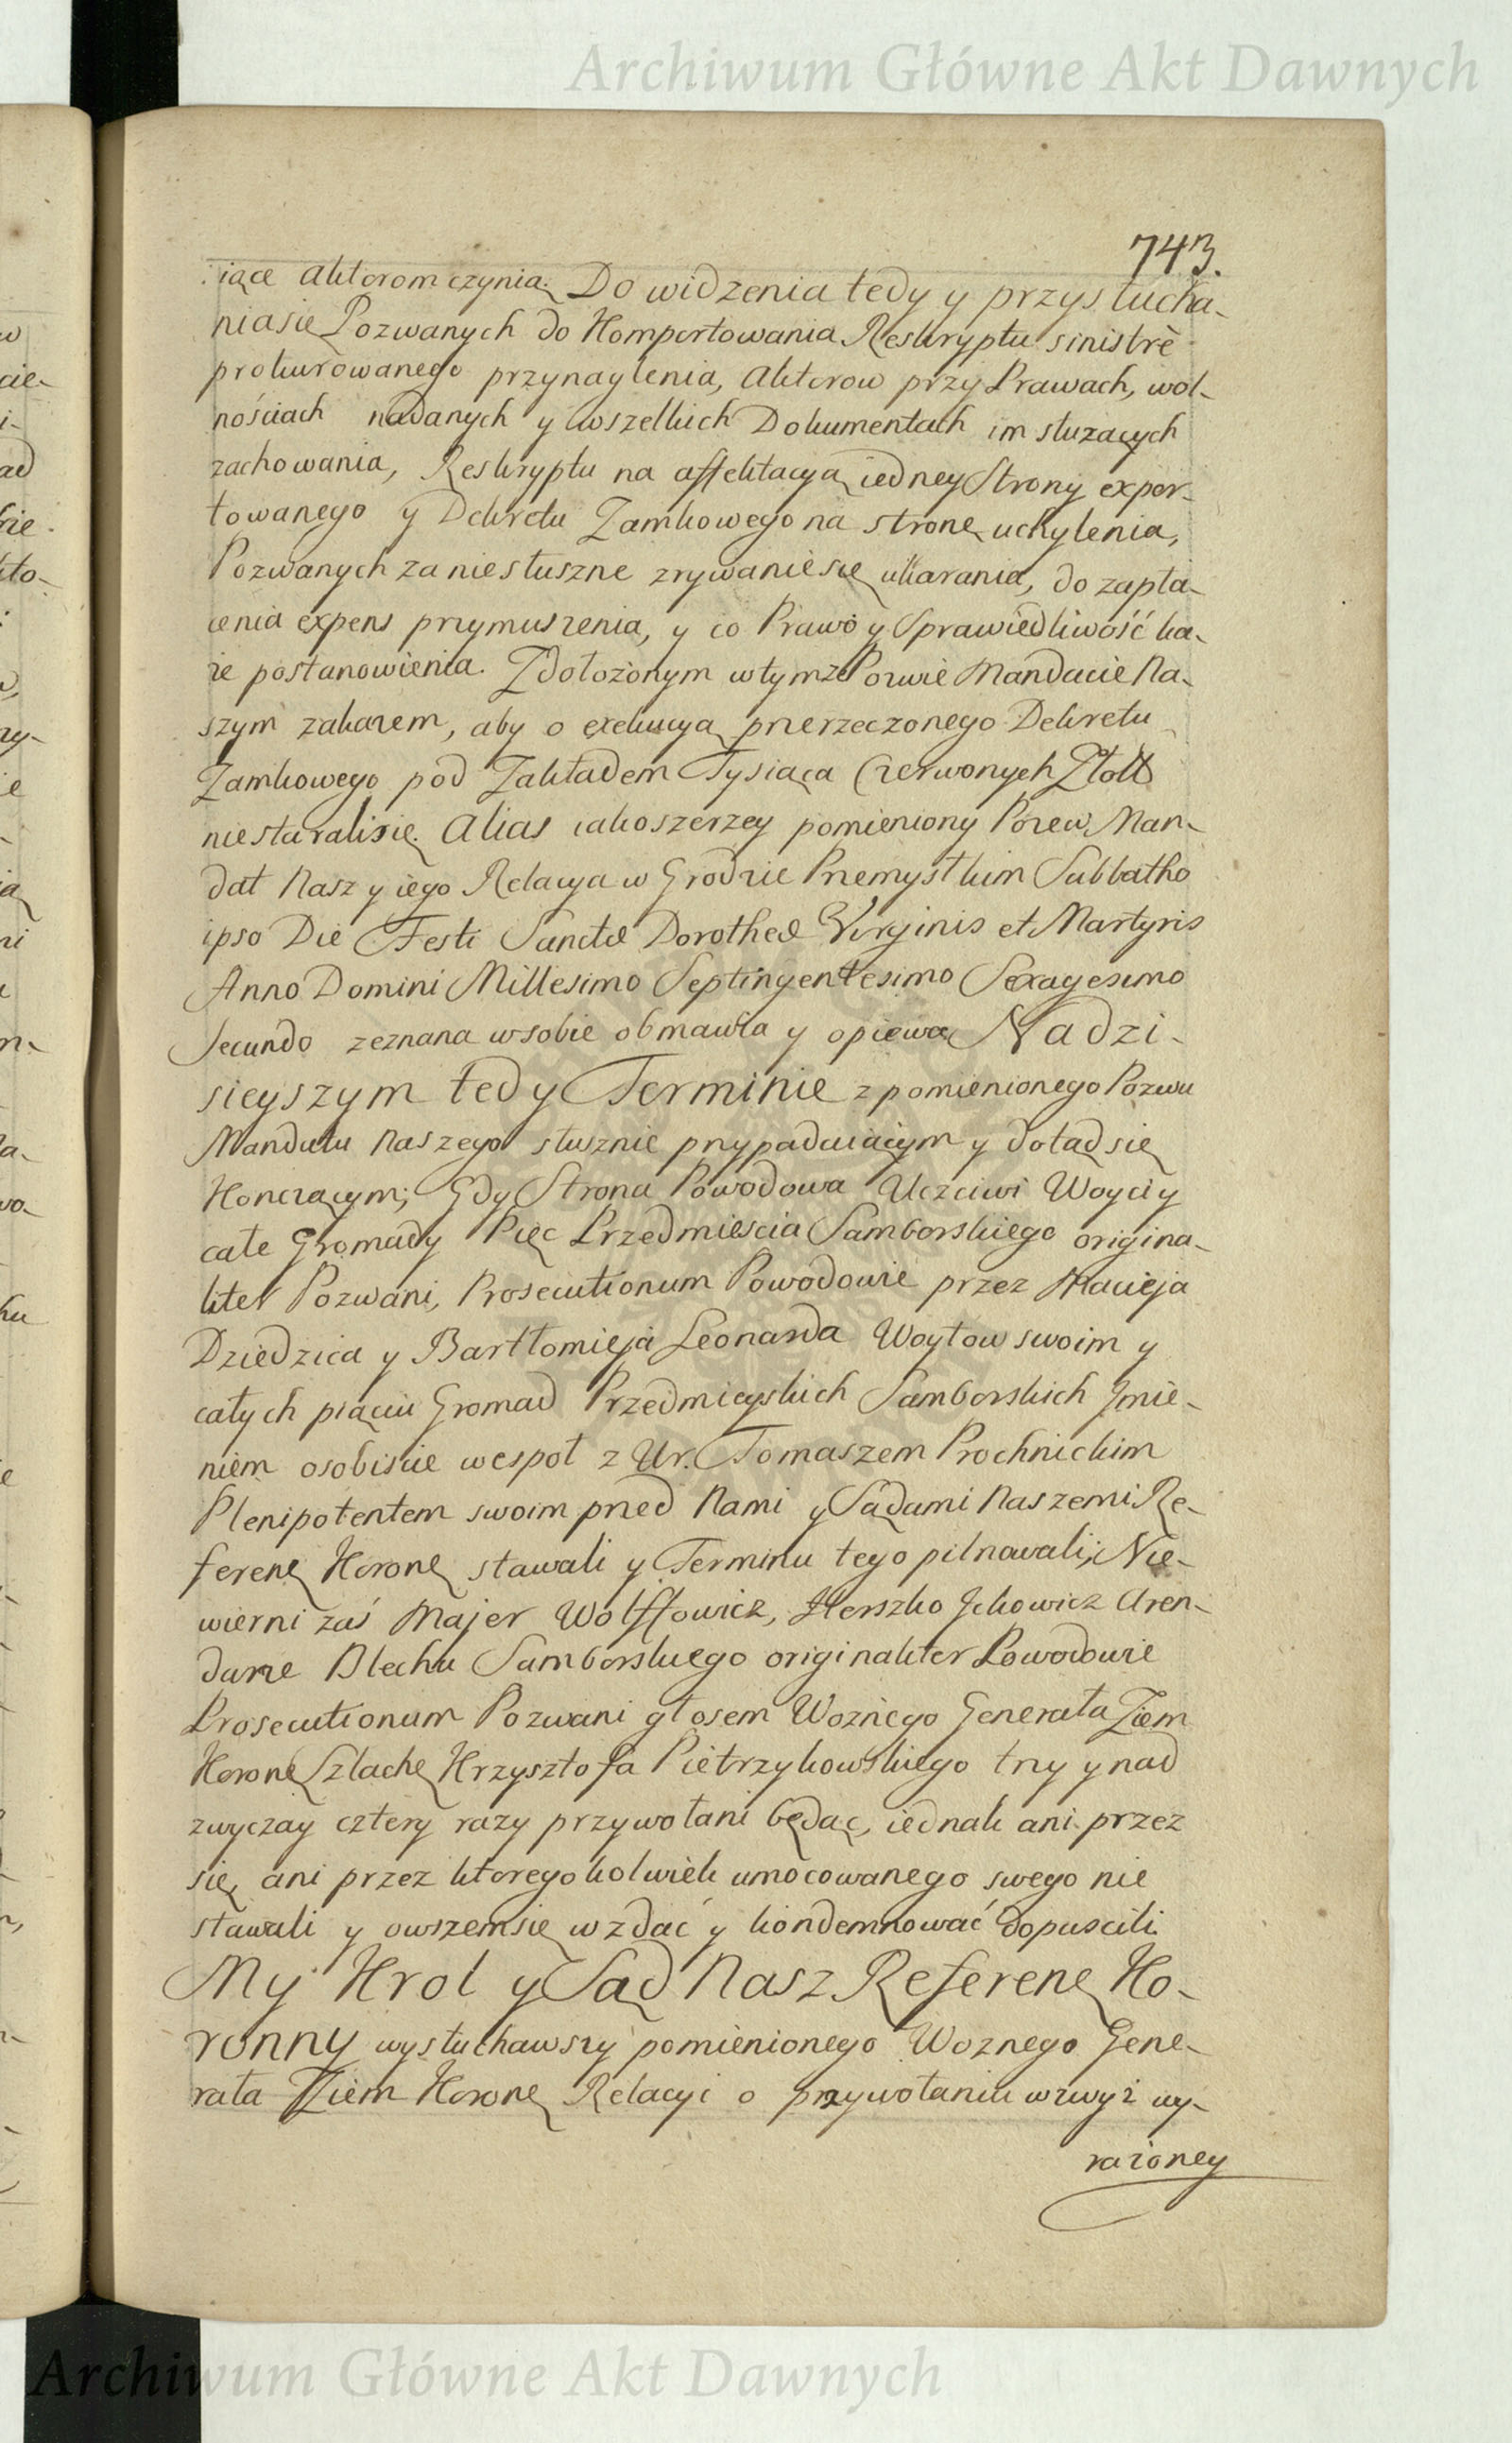 Archiwum Główne Akt Dawnych
743.
iące Aktorom czynią. Do widzenia tedy y przysłucha-
nia się Pozwanych do Komportowania Reskryptu sinistrè
prokurowanego przynaglenia, Aktorow przy Prawach, wol-
nościach nadanych y wszelkich Dokumentach im służących
zachowania, Reskryptu na affektacyą iedney Strony expor-
towanego y Dekretu Zamkowego na stronę uchylenia,
Pozwanych za niesłuszne zrywanie się ukarania, do zapła-
cenia expens przymuszenia, y co Prawo y Sprawiedliwość ka-
że postanowienia. Z dołożonym w tymże Pozwie Mandacie Na-
szym zakazem, aby o exekucyą przerzeczonego Dekretu
Zamkowego pod Zakładem Tysiąca Czerwonych Złott
nie starali się. Alias iako szerzey pomieniony Pozew Man-
dat Nasz y iego Relacya w Grodzie Przemyslkim Sabbatho
ipso Die Festi Sanctæ Dorotheæ Virginis et Martyris
Anno Domini Millesimo Septingentesimo Sexagesimo
Secundo zeznana w sobie obmawia y opiewa Na dzi-
sieyszym tedy Terminie z pomienionego Pozwu
Mandatu Naszego słusznie przypadaiącym y dotąd się
Kończącym; Gdy Strona Powodowa Uczciwi Woyci y
całe Gromady Pięc Przedmieścia Samborskiego origina-
liter Pozwani, Prosecutionum Powodowie przez Macieja
Dziedzica y Bartłomieja Leonarda Woytow swoim y
całych piąciu Gromad Przedmieyskich Samborskich Jmie-
niem osobiscie wespoł z Ur. Tomaszem Prochnickim
Plenipotentem swoim przed Nami y Sądami Naszemi Re-
feren Koron stawali y Terminu tego pilnowali; Nie-
wierni zaś Majer Wolffowicz, Herszko Jckowicz Aren-
darze Blechu Samborskiego originaliter Powodowie
Prosecutionum Pozwani głosem Woźnego Generała Ziem
Koron Szlache Krzysztofa Pietrzykowskiego trzy y nad
zwyczay cztery razy przywołani będąc, iednak ani przez
się, ani przez ktoregokolwiek umocowanego swego nie
stawali y owszem się wzdać y kondemnować dopuscili
My Krol y Sąd Nasz Referen Ko-
ronny wysłuchawszy pomienionego Woznego Gene-
rała Ziem Koron Relacyi o przywołaniu wzwyż wy-
rażoney
Archiwum Główne Akt Dawnych